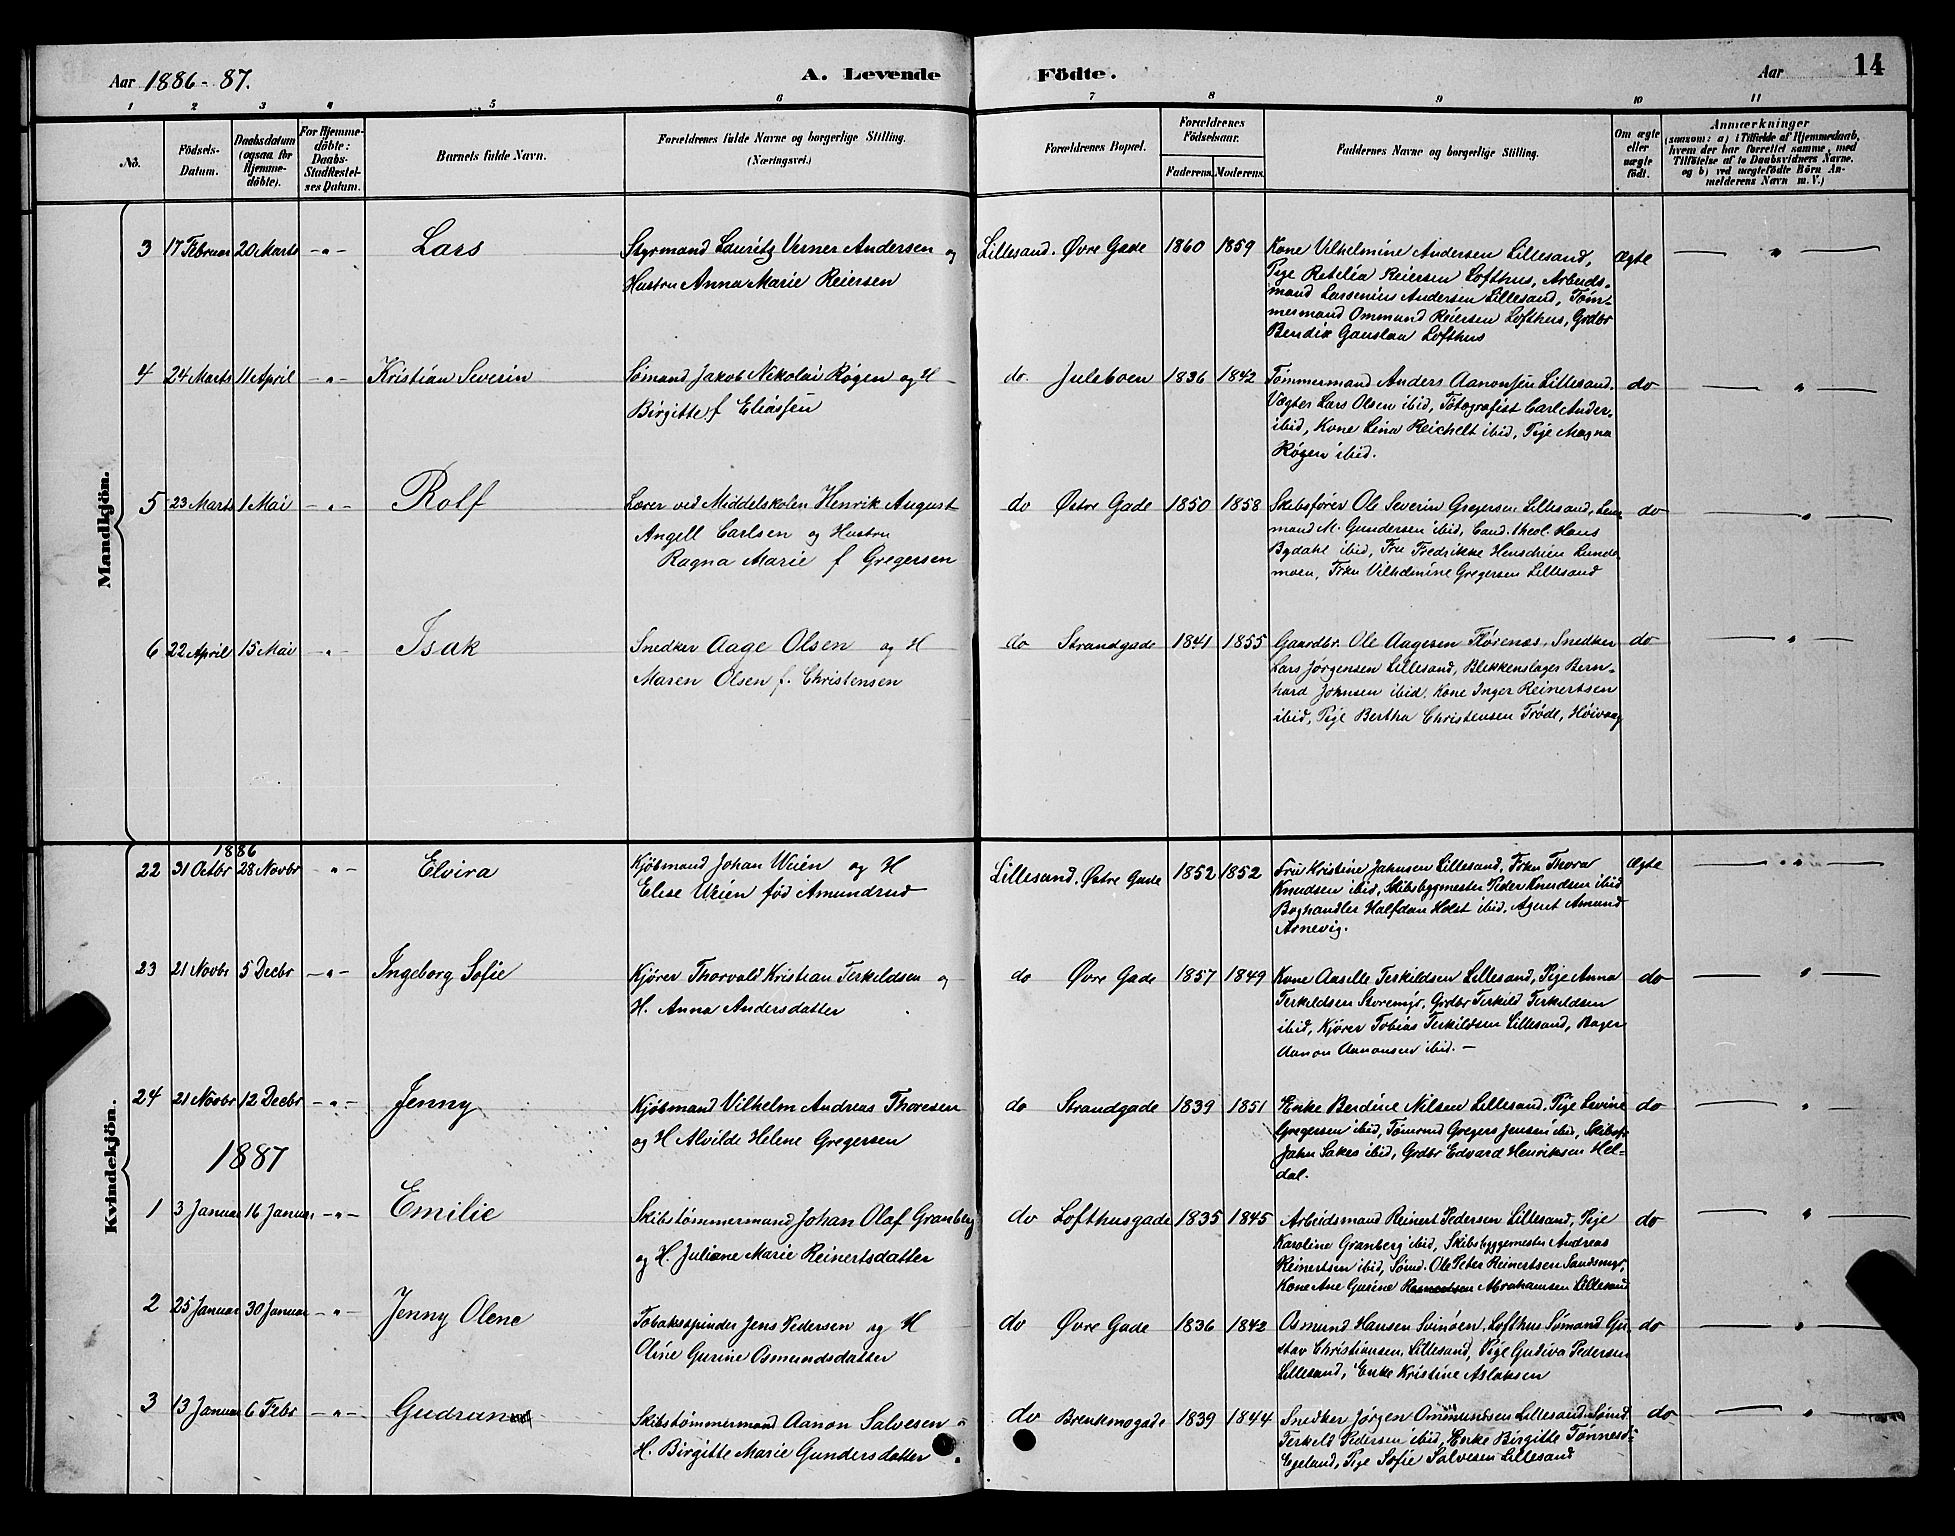 Aar 1886-87.
A. Levende Födte.
Aar
14
1 2 3 4 5 6 7 8 9 10 11
No.
Födsels-
Datum.
Daabsdatum
(ogsaa for
Hjemme-
döbte).
For Hjemme-
döbte:
Daabs-
Stadfæstel-
ses Datum.
Barnets fulde Navn.
Forældrenes fulde Navne og borgerlige Stilling.
(Næringsvei.)
Forældrenes Bopæl.
Forældrenes
Födselsaar.
Faderens. Moderens.
Faddernes Navne og borgerlige Stilling.
Om ægte
eller
uægte
födt.
Anmærkninger
(saasom: a) i Tilfælde af Hjemmedaab,
hvem der har forrettet samme, med
Tilföielse af to Daabsvidners Navne.
og b) ved uægtefödte Börn An-
melderens Navn m. V.)
Mandkjön.
3 17 Februar 20 Marts -"- Lars
Styrmand Lauritz Verner Andersen og
Hustru Anna Marie Reiersen
Lillesand. Øvre Gade 1860 1859
Kone Vilhelmine Andersen Lillesand,
Pige Retelia Reiersen Lofthus, Arbeids-
mand Larsenius Andersen Lillesand, Töm-
mermand Ommund Reiersen Lofthus, Grdbr
Bendix Gauslaa Lofthus
Ægte - " -
4 24 Marts 11 April -"- Kristian Severin
Sømand Jakob Nikolai Røgen og H
Birgitte f Eliassen
do. Juleboen 1836 1842
Tømmermand Anders Aanonsen Lillesand.
Vægter Lars Olsen ibid, Fotografist Carl Ander-
ibid, Kone Lina Reichelt ibid, Pige Magna
Røgen ibid.
do - " -
5 23 Marts 1 Mai -"- Rolf
Lærer ved Middelskolen Henrik August
Angell Carlsen og Hustru
Ragna Marie f Gregersen
do Østre Gade 1850 1858
Skibsfører Ole Severin Gregersen Lillesand,
mand M. Gundersen ibid, Cand. theol. Hans
Bydahl ibid, Fru Fredrikke Henschien Lunde-
moen, Frkn Vilhelmine Gregersen Lillesand
do - " -
6 22 April 15 Mai -"- Isak
Snedker Aage Olsen og H
Maren Olsen f. Christensen
do Strandgade 1841 1855
Gaardbr. Ole Aagesen Flørenæs, Snedker
Lars Jørgensen Lillesand, Blikkenslager Bern-
hard Johnsen ibid. Kone Inger Reinertsen
ibid, Pige Bertha Christensen Trøde, Høivaag
do - " -
Kvindekjön.
1886
22 31 Octbr 28 Novbr -"- Elvira
Kjöbmand Johan Weien og H
Elise Weien fød Amundrud
Lillesand. Østre Gade 1852 1852
Fru Kristine Jahnsen Lillesand, Frkn Thora
Knudsen ibid, Skibsbygmester Peder Knudsen ibid
Boghandler Halfdan Holst ibid. Agent Amund
Arnevig.
Ægte - " -
23 21 Novbr 5 Decbr -"- Ingeborg Sofie
Kjörer Thorvald Kristian Terkildsen og
H. Anna Andersdatter
do Øvre Gade 1857 1849
Kone Aaselle Terkildsen Lillesand, Pige Anna
Terkildsen Storemyr, Grdbr Terkild Terkildsen
ibid, Kjører Tobias Terkildsen Lillesand, Bager
Aanon Aanonsen ibid. -
do - " -
24 21 Novbr 12 Decbr -"- Jenny
Kjöbmand Vilhelm Andreas Thoresen
og H Alvilde Helene Gregersen
do Strandgade 1839 1851
Enke Berdine Nilsen Lillesand, Pige Levine
Gregersen ibid, Tömrmd Gregers Jensen ibid, Skibsf.
John Sakes ibid, Grdbr Edvard Henriksen Hel-
dal.
do - " -
1887
1 3 Januar 16 Januar -"- Emilie
Skibstømmermand Johan Olaf Granberg
og H. Juliane Marie Reinertsdatter
do Lofthusgade 1835 1845
Arbeidsmand Reinert Pedersen Lillesand, Pige
Karoline Granberg ibid, Skibsbyggemester Andreas
Reinertsen ibid, Sømd. Ole Peter Reinertsen Sandsmyr,
Kone Ane Gurine Abrahamsen Lillesand
do - " -
2 25 Januar 30 Januar -"- Jenny Olene
Tobakspinder Jens Pedersen og H
Oline Gurine Osmundsdatter
do Øvre Gade 1836 1842
Osmund Hansen Svinøen, Lofthus Sømand Gu-
stav Christiansen Lillesand, Pige Gudiva Pedersen
Lillesand, Enke Kristine Aslaksen
do - " -
3 13 Januar 6 Febr -"- Gudrun
Skibstømmermand Aanon Salvesen o
H. Birgitte Marie Gundersdatter
do Brekmogade 1839 1844
Snedker Jørgen Ommundsen Lillesand. Sömd.
Terkeld Pedersen ibid, Enke Birgitte Tønnesd:
Egeland, Pige Sofie Salvesen Lillesand
do - " -